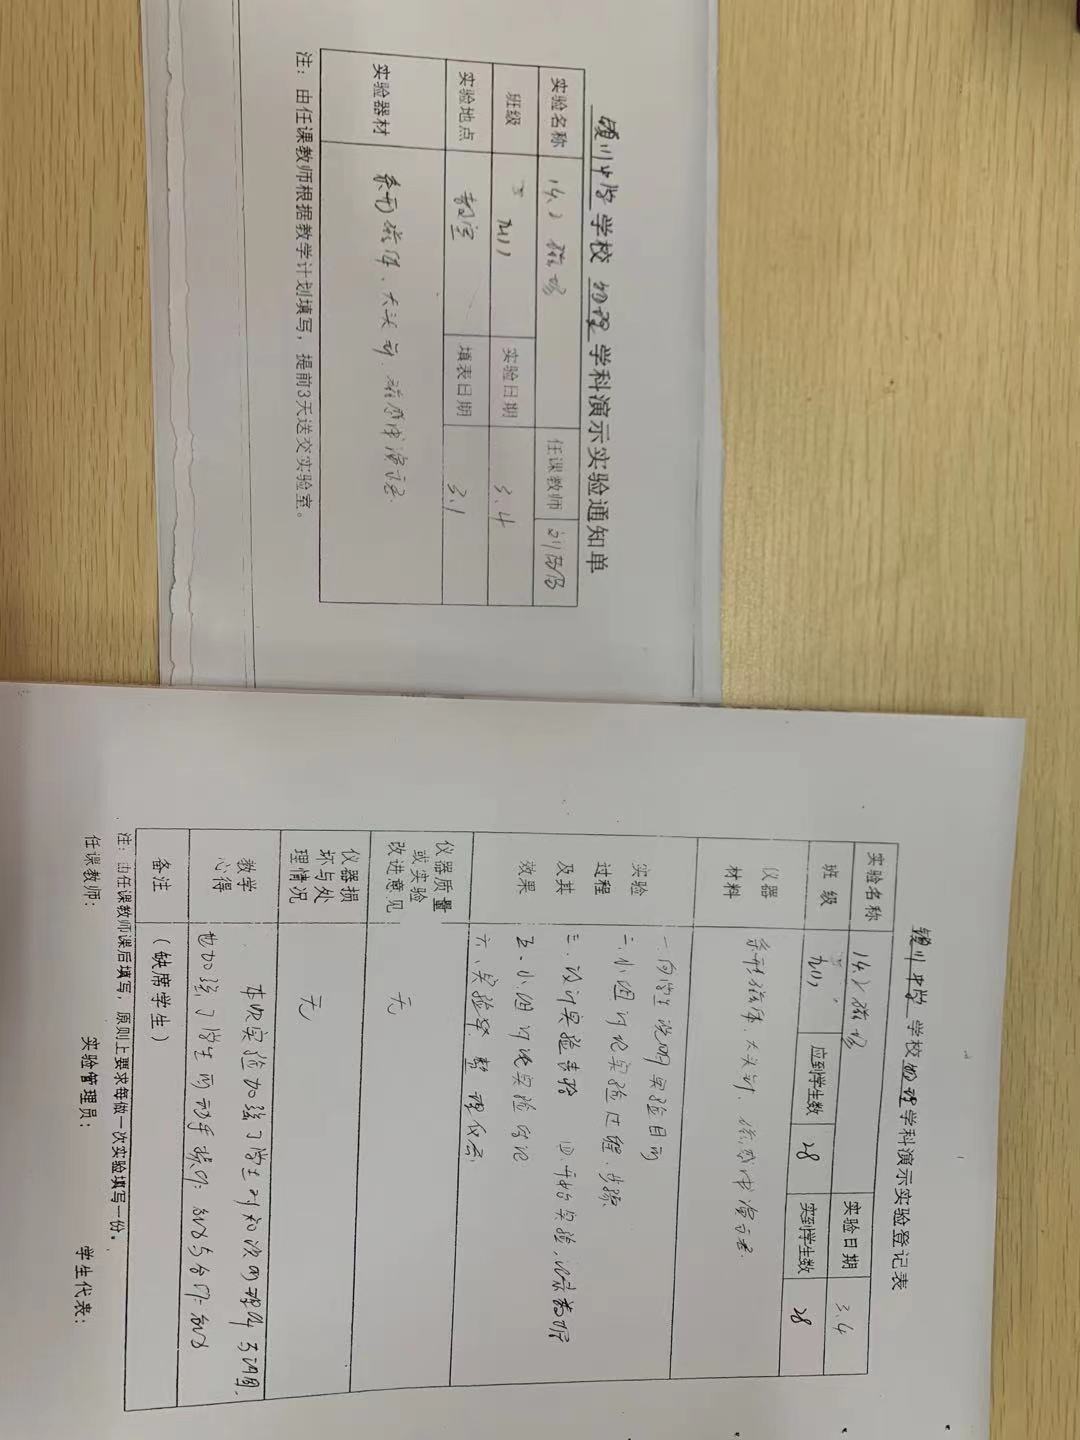 镜川中学 学校 物理 学科演示实验通知单
实验名称 14.2 磁场 任课教师
班级 九(1) 实验日期 3.4
实验地点 教室 填表日期 3.1
实验器材 条形磁体、大头针、磁感线演示器.
注：由任课教师根据教学计划填写，提前3天送交实验室。
镜川中学 学校 物理 学科演示实验登记表
实验名称 14.2 磁场 实验日期 3.4
班级 九(1) 应到学生数 28 实到学生数 28
仪器材料 条形磁体、大头针、磁感线演示器.
实验过程及其效果
一、向学生说明实验目的
二、小组讨论实验过程、步骤.
三、设计实验表格 四、开始实验，记录数据
五、小组讨论实验结论
六、实验毕. 整理仪器.
仪器质量或实验改进意见 无
仪器损坏与处理情况 无
教学心得 本次实验加强了学生对知识的理解
也加强了学生的动手
备注 （缺席学生）
注：由任课教师课后填写，原则上要求每做一次实验填写一份。
任课教师： 实验管理员： 学生代表：